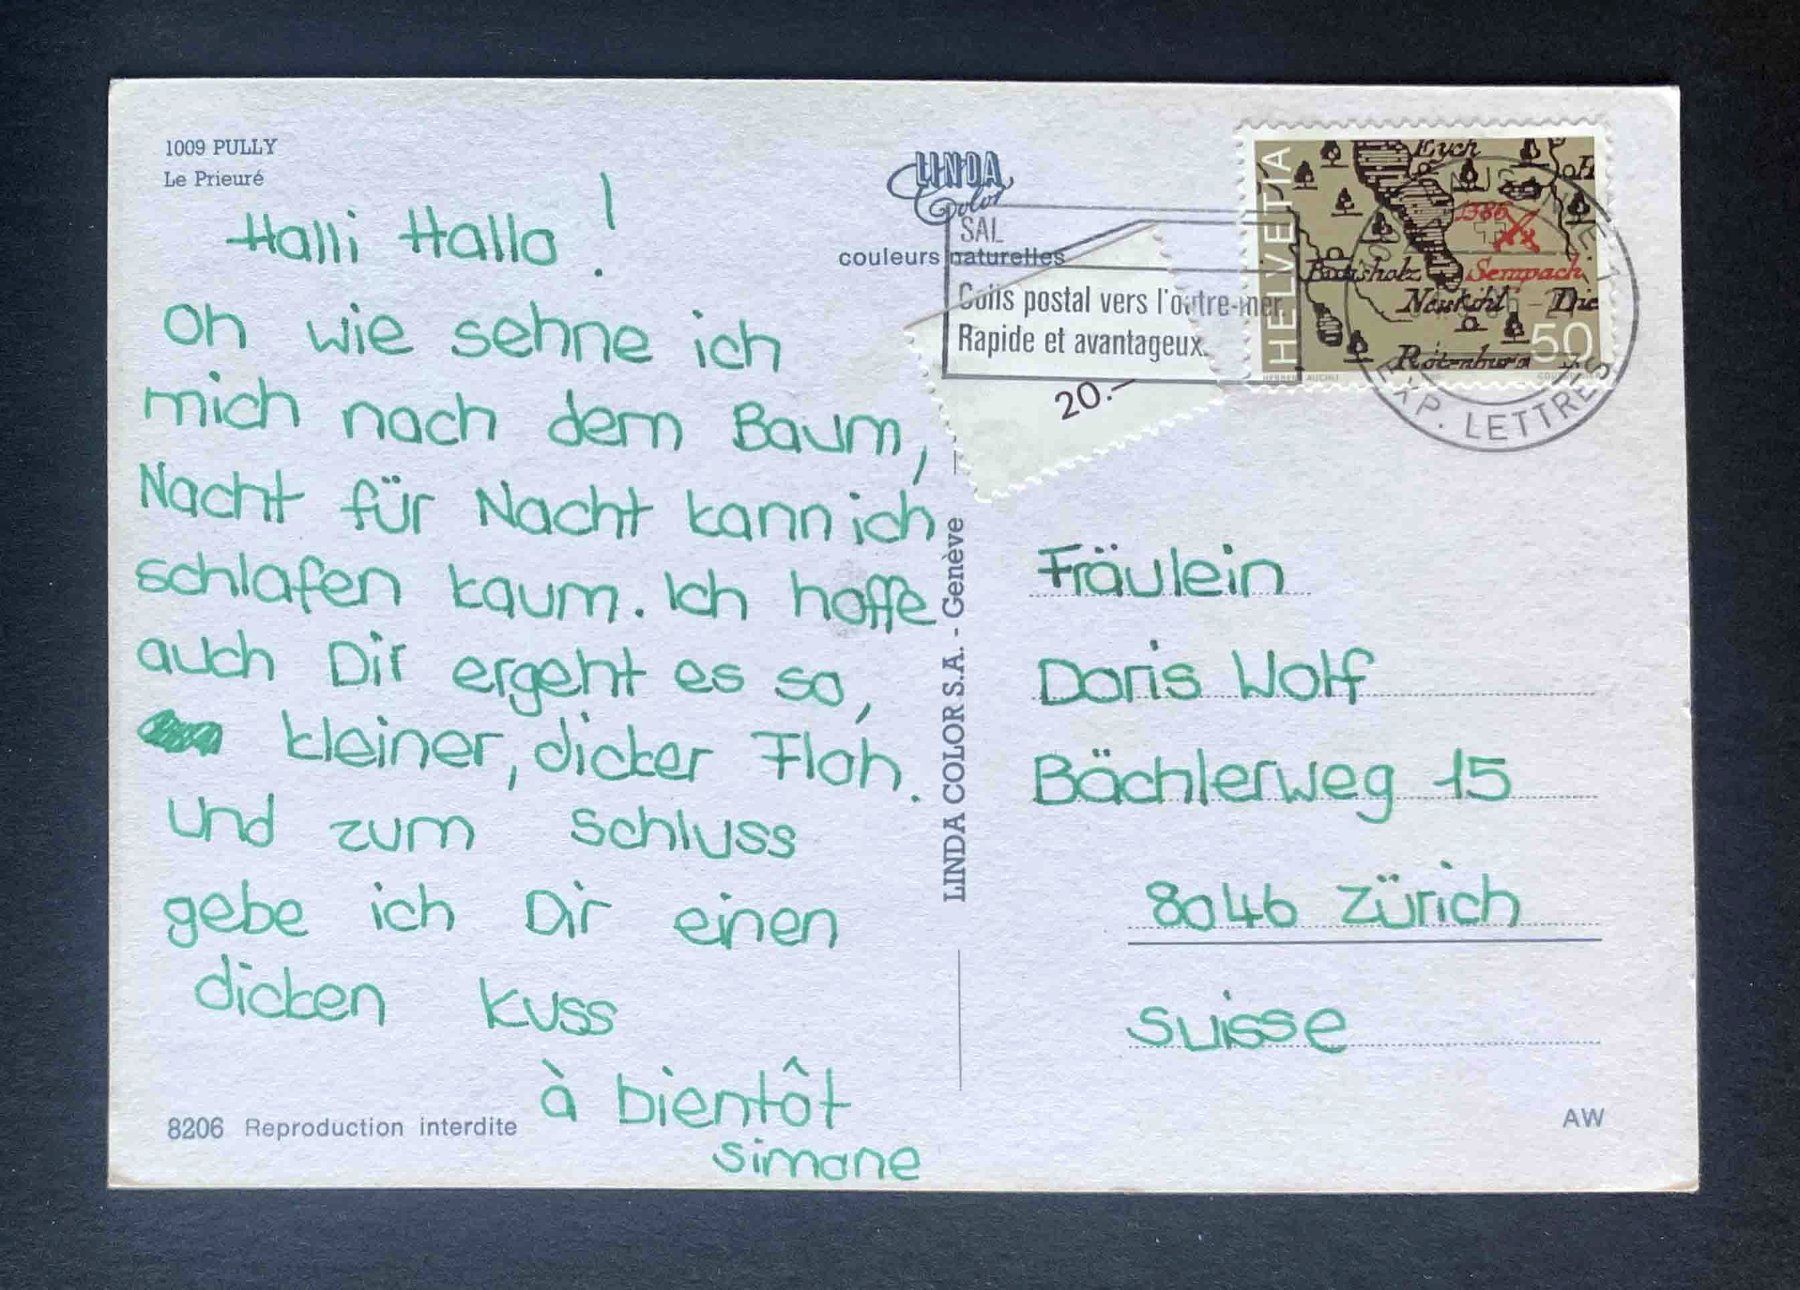 1009 PULLY
Le Prieuré
Halli Hallo!
Oh wie sehne ich
mich nach dem Baum,
Nacht für Nacht kann ich
schlafen kaum. Ich hoffe
auch Dir ergeht es so,
kleiner, dicker Floh.
Und zum Schluss
gebe ich Dir einen
dicken Kuss
à bientôt
Simone
8206 Reproduction interdite
LINDA
Color
SAL
couleurs naturelles
Colis postal vers l'outre-mer.
Rapide et avantageux.
20.–
LINDA COLOR S.A. - Genève
HELVETIA
Eych
1386
Sempach
Rotenburg
50
EXP. LETTRES
Fräulein
Doris Wolf
Bächlerweg 15
8046 Zürich
Suisse
AW